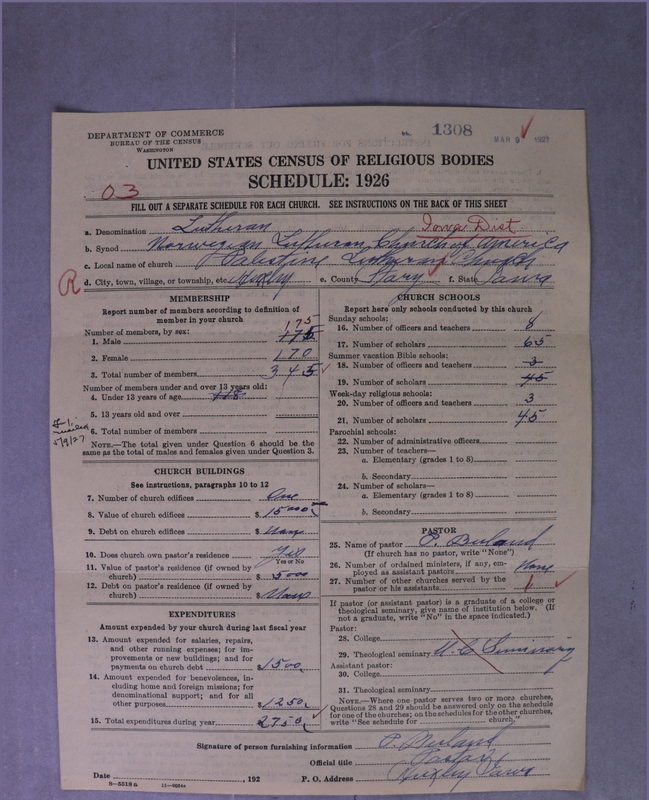 DEPARTMENT OF COMMERCE
BUREAU OF THE CENSUS
WASHINGTON
1308
MAR 9 1927
UNITED STATES CENSUS OF RELIGIOUS BODIES
SCHEDULE: 1926
03
FILL OUT A SEPARATE SCHEDULE FOR EACH CHURCH. SEE INSTRUCTIONS ON THE BACK OF THIS SHEET
a. Denomination Lutheran Iowa Dist.
b. Synod Norwegian Lutheran Church of America
c. Local name of church Palestine Lutheran Church
R
d. City, town, village, or township, etc. Huxley e. County Story f. State Iowa
MEMBERSHIP
Report number of members according to definition of member in your church
Number of members, by sex:
175
1. Male 175
2. Female 170
3. Total number of members 345
Number of members under and over 13 years old:
4. Under 13 years of age 118
5. 13 years old and over
6. Total number of members
5/9/27
NOTE.—The total given under Question 6 should be the same as the total of males and females given under Question 3.
CHURCH BUILDINGS
See instructions, paragraphs 10 to 12
7. Number of church edifices One
8. Value of church edifices $ 15000
9. Debt on church edifices $ None
10. Does church own pastor's residence Yes
Yes or No
11. Value of pastor's residence (if owned by church) $ 5000
12. Debt on pastor's residence (if owned by church) $ None
EXPENDITURES
Amount expended by your church during last fiscal year
13. Amount expended for salaries, repairs, and other running expenses; for improvements or new buildings; and for payments on church debt $ 1500
14. Amount expended for benevolences, including home and foreign missions; for denominational support; and for all other purposes $ 1250
15. Total expenditures during year $ 2750
CHURCH SCHOOLS
Report here only schools conducted by this church
Sunday schools:
16. Number of officers and teachers 8
17. Number of scholars 65
Summer vacation Bible schools:
18. Number of officers and teachers 3
19. Number of scholars 45
Week-day religious schools:
20. Number of officers and teachers 3
21. Number of scholars 45
Parochial schools:
22. Number of administrative officers
23. Number of teachers—
a. Elementary (grades 1 to 8)
b. Secondary
24. Number of scholars—
a. Elementary (grades 1 to 8)
b. Secondary
PASTOR
25. Name of pastor P.
(If church has no pastor, write "None")
26. Number of ordained ministers, if any, employed as assistant pastors None
27. Number of other churches served by the pastor or his assistants 1
If pastor (or assistant pastor) is a graduate of a college or theological seminary, give name of institution below. (If not a graduate, write "No" in the space indicated.)
Pastor:
28. College
29. Theological seminary U. C. Seminary
Assistant pastor:
30. College
31. Theological seminary
NOTE.—Where one pastor serves two or more churches, Questions 28 and 29 should be answered only on the schedule for one of the churches; on the schedules for the other churches, write "See schedule for church."
Signature of person furnishing information P.
Official title Pastor
Date , 192 P. O. Address Huxley Iowa
8-5518a